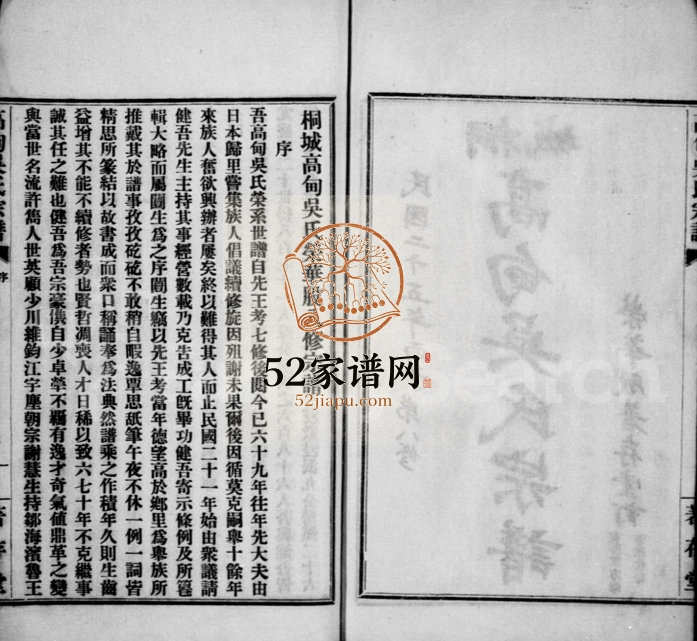 桐城高甸吳氏榮華股
修宗譜
序
吾高甸吳氏榮系世譜自先王考七修後閱今已六十九年往年先大夫由
日本歸里嘗集族人倡議續修旋因殂謝未果爾後因循莫克嗣舉十餘年
來族人奮欲興辦者屢矣終以難得其人而止民國二十一年始由衆議請
健吾先生主持其事經營數載乃克告成工既畢功健吾寄示條例及所籑
輯大略而屬闓生爲之序闓生竊以先王考當年德望高於鄉里爲舉族所
推戴其於譜事孜孜矻矻不敢稍自暇逸覃思舐筆午夜不休一例一詞皆
精思所篆結以故書成而衆口稱誦奉爲法典然譜乘之作積年久則生齒
益增其不能不續修者勢也賢哲凋喪人才日稀以致六七十年不克繼事
誠其任之難也健吾爲吾宗豪儁自少卓犖不羈有逸才奇氣値鼎革之變
與當世名流許雋人世英顧少川維鈞江宇塵朝宗謝慧生持鄒海濱魯王
高甸吳氏宗譜
序
一
著存堂
52家谱网
52jiapu.com
高甸吳氏宗譜
民國二十五年
第八修
著存堂